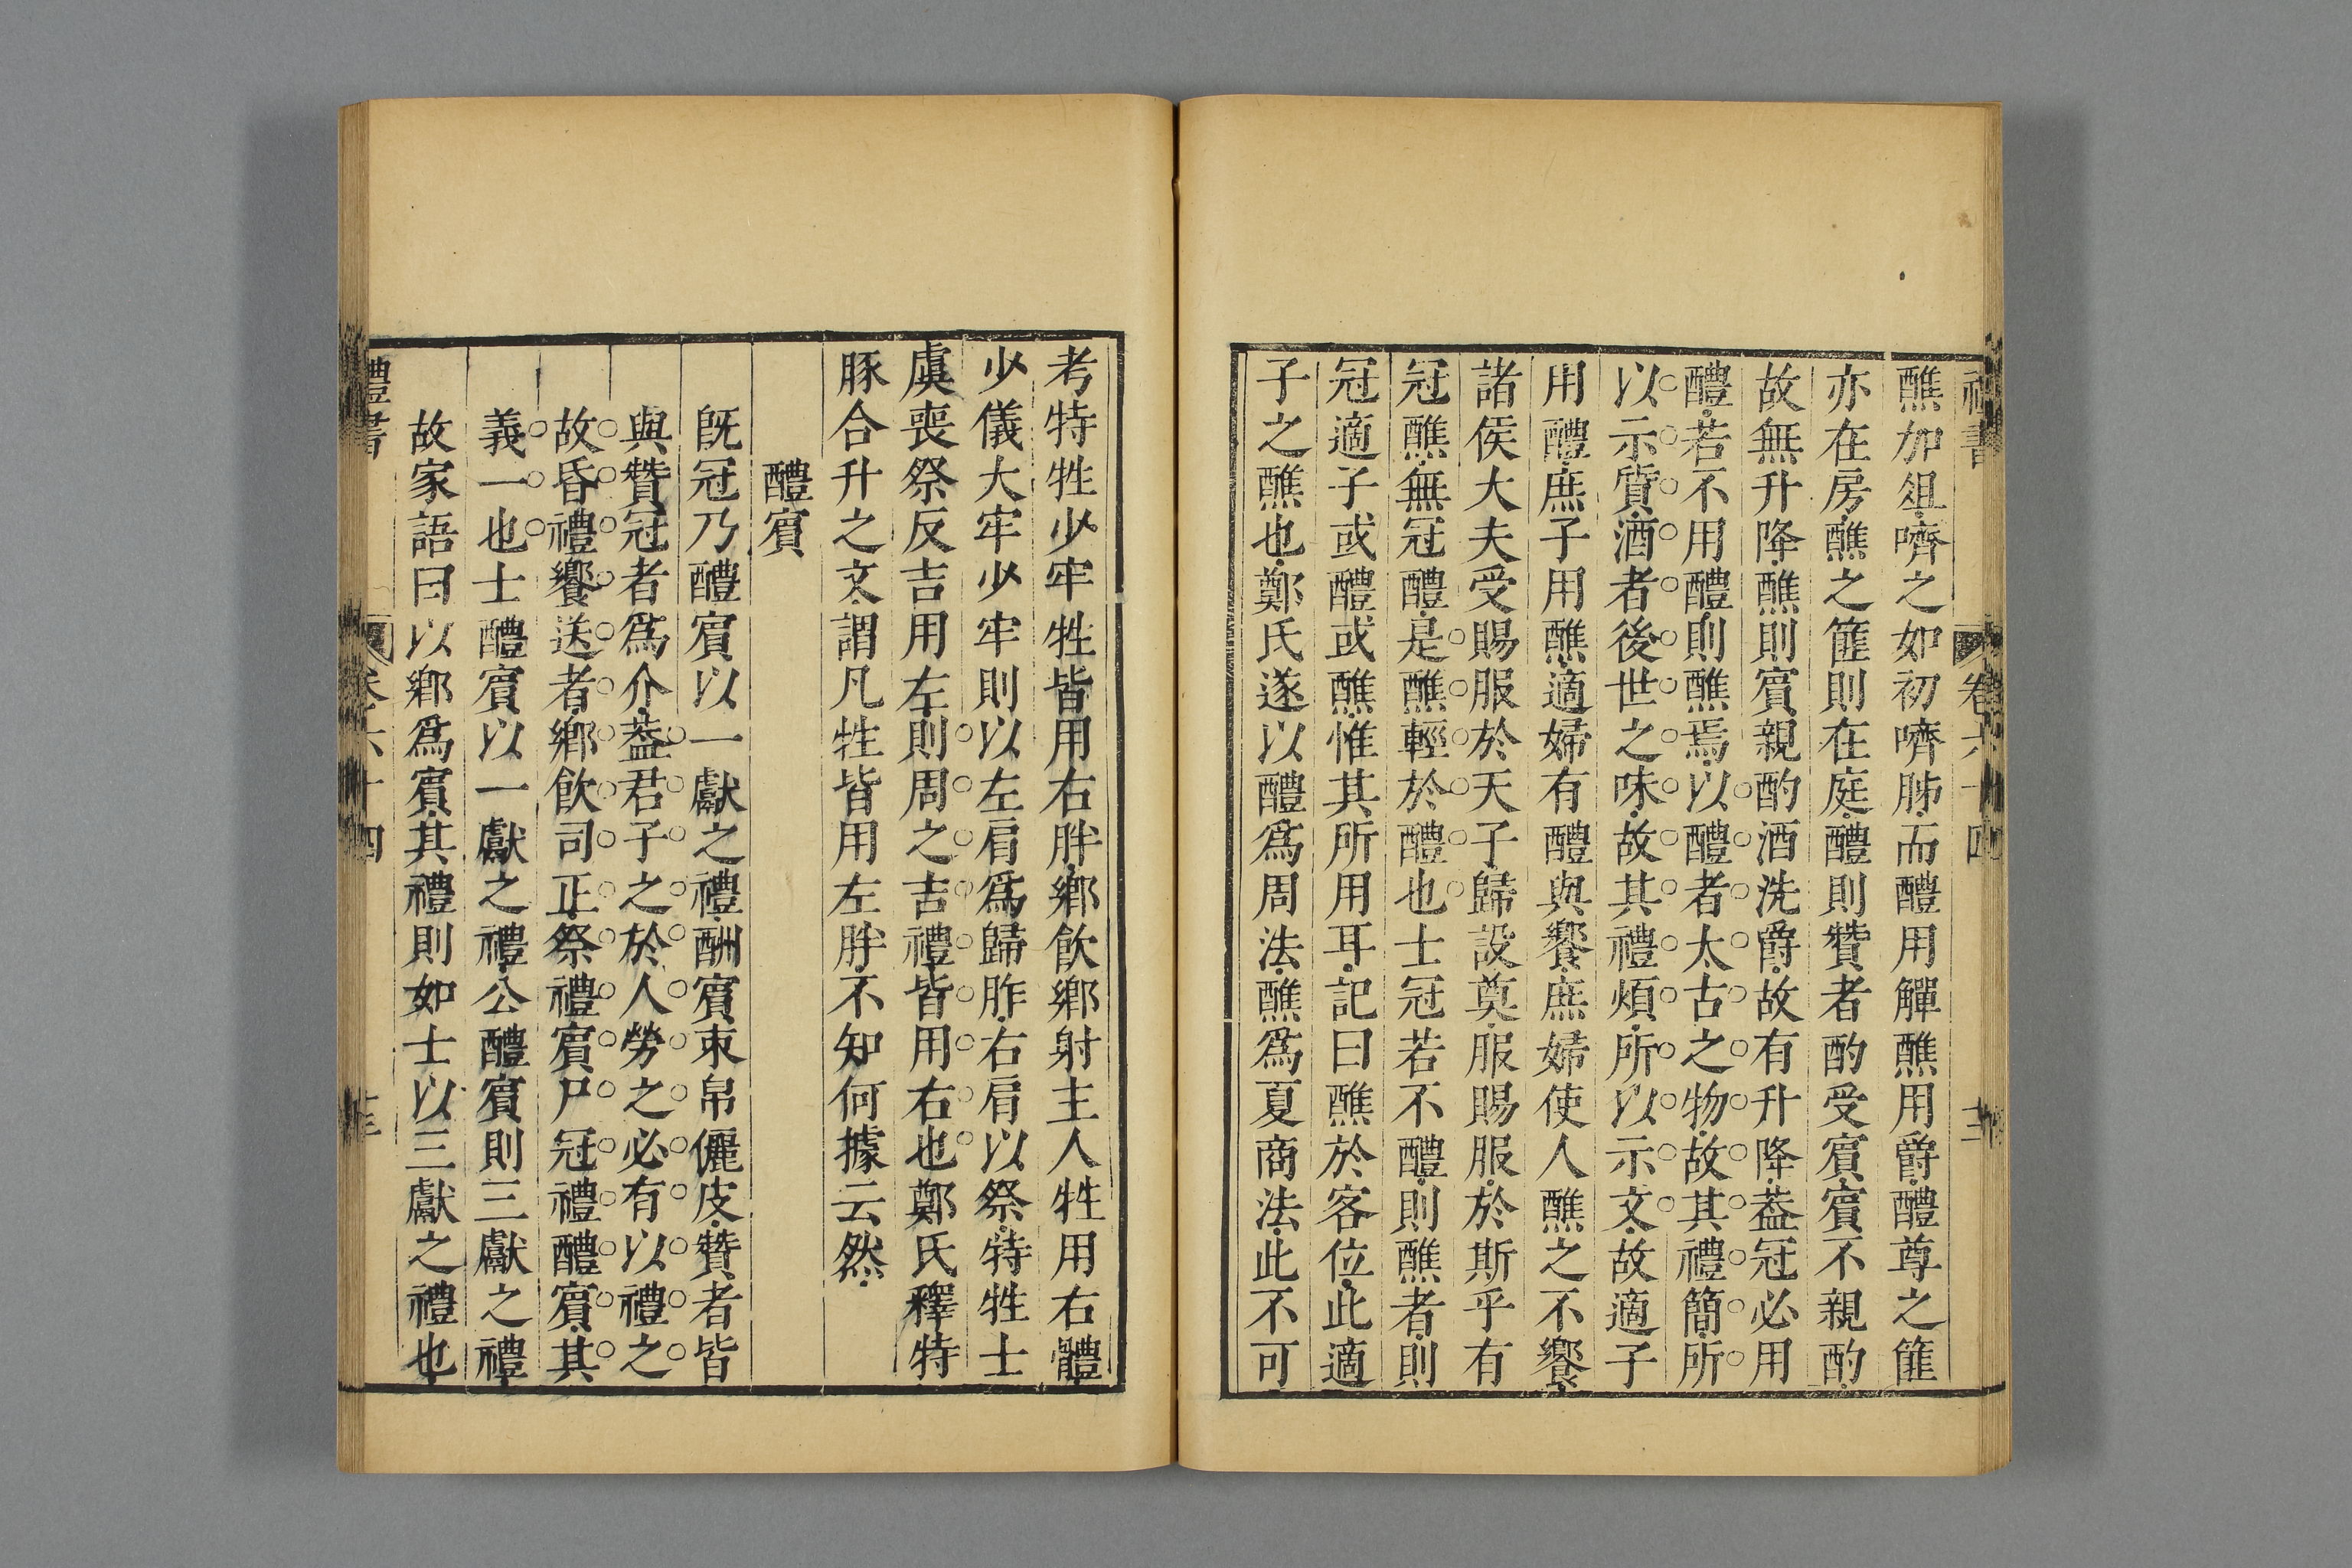 醮加俎嚌之如初嚌肺而醴用觶醮用爵醴尊之篚
亦在房醮之篚則在庭醴則贊者酌受賔賔不親酌
故無升降醮則賔親酌酒洗爵故有升降葢冠必用
醴若不用醴則醮焉以醴者太古之物故其禮簡所
以示質酒者後世之味故其禮煩所以示文故適子
用醴庶子用醮適婦有醴與饗庶婦使人醮之不饗
諸侯大夫受賜服於天子歸設奠服賜服於斯乎有
冠醮無冠醴是醮輕於醴也士冠若不醴則醮者則
冠適子或醴或醮惟其所用耳記曰醮於客位此適
子之醮也鄭氏遂以醴爲周法醮爲夏商法此不可
考特牲少牢牲皆用右胖鄉飲鄉射主人牲用右體
少儀大牢少牢則以左肩爲歸胙右肩以祭特牲士
虞喪祭反吉用左則周之吉禮皆用右也鄭氏釋特
豚合升之文謂凡牲皆用左胖不知何據云然
醴賔
旣冠乃醴賔以一獻之禮酬賔束帛儷皮贊者皆
與贊冠者爲介葢君子之於人勞之必有以禮之
故昏禮饗送者鄉飲司正祭禮賔尸冠禮醴賔其
義一也士醴賔以一獻之禮公醴賔則三獻之禮
故家語曰以鄉爲賔其禮則如士以三獻之禮也
禮書
卷六十四